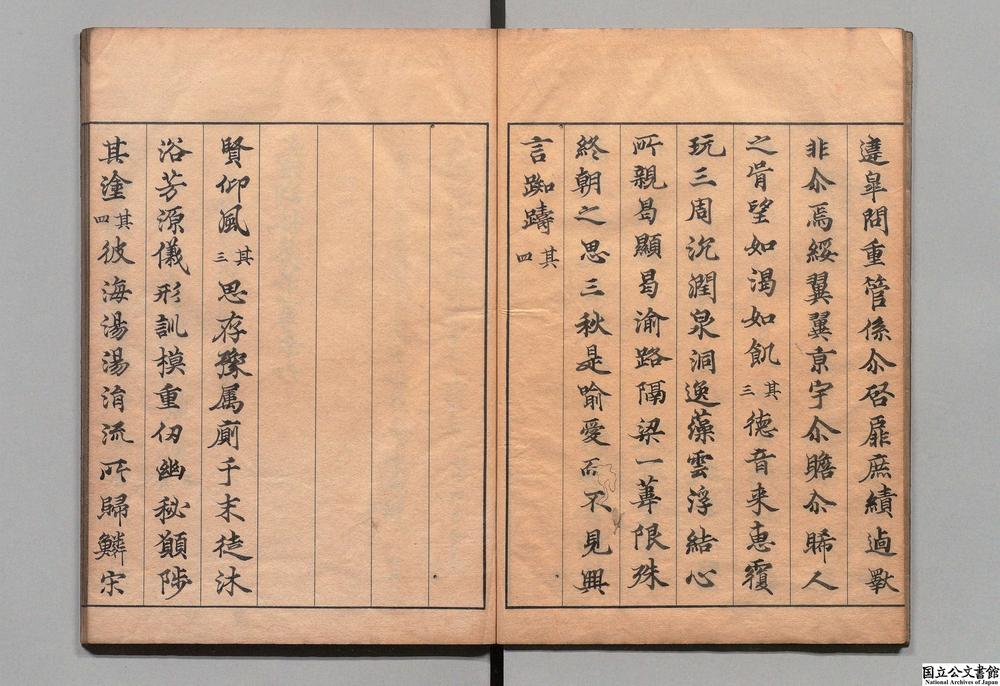 違皐問重管係尒啓扉庶績逌斁
非尒焉綏翼翼京宇尒瞻尒睎人
之胥望如渴如飢其三德音来惠覆
玩三周沉潤泉洞逸藻雲浮結心
所親曷顯曷渝路隔梁一葦限殊
終朝之思三秋是喻愛而不見興
言踟躊其四
賢仰風其三思存豫属廁于末徒沐
浴芳源儀形訓模重仞幽秘願陟
其塗其四彼海湯湯涓流所歸鱗宋
国立公文書館
National Archives of Japan